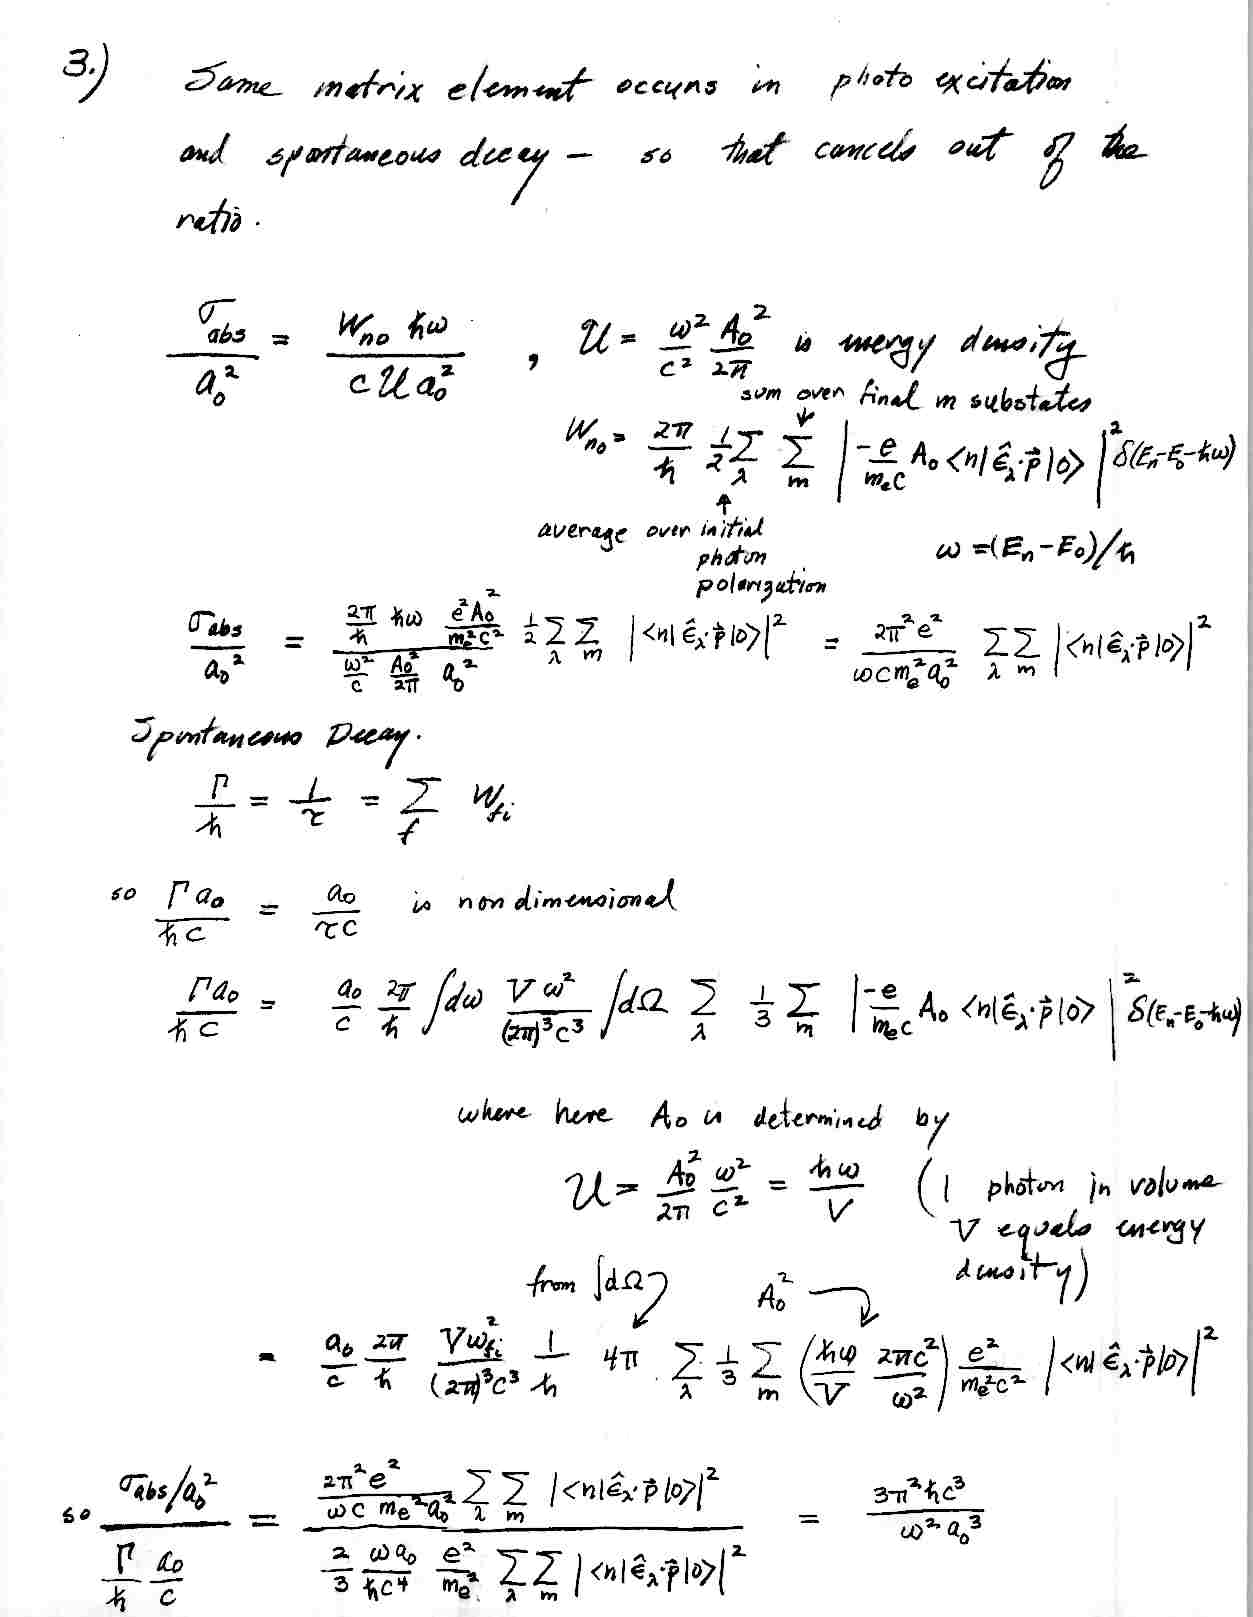 3.) Same matrix element occurs in photo excitation
and spontaneous decay — so that cancels out of the
ratio.
σ_abs / a₀² = W_no ħω / (c U a₀²) , U = (ω²/c²) (A₀²/2π) is energy density
sum over final m substates
W_no = (2π/ħ) ½ Σ_λ Σ_m | (-e/(m_e c)) A₀ <n| ε̂_λ·p⃗ |0> |² δ(E_n-E₀-ħω)
average over initial
photon
polarization
ω = (E_n - E₀)/ħ
σ_abs / a₀² = [ (2π/ħ) ħω (e²A₀²/(m_e²c²)) / ( (ω²/c) (A₀²/2π) a₀² ) ] ½ Σ_λ Σ_m |<n| ε̂_λ·p⃗ |0>|² = (2π²e² / (ω c m_e² a₀²)) Σ_λ Σ_m |<n| ε̂_λ·p⃗ |0>|²
Spontaneous Decay.
Γ/ħ = 1/τ = Σ_f W_fi
so Γa₀/(ħc) = a₀/(τc) is non dimensional
Γa₀/(ħc) = (a₀/c) (2π/ħ) ∫dω (Vω²/((2π)³c³)) ∫dΩ Σ_λ ⅓ Σ_m | (-e/(m_e c)) A₀ <n| ε̂_λ·p⃗ |0> |² δ(E_n-E₀-ħω)
where here A₀ is determined by
U = (A₀²/2π) (ω²/c²) = ħω/V (1 photon in volume
V equals energy
density)
from ∫dΩ A₀²
= (a₀/c) (2π/ħ) (Vω_fi²/((2π)³c³)) (1/ħ) 4π Σ_λ ⅓ Σ_m ( (ħω/V) (2πc²/ω²) ) (e²/(m_e²c²)) |<n| ε̂_λ·p⃗ |0>|²
so (σ_abs/a₀²) / ((Γ/ħ) (a₀/c)) = [ (2π²e²/(ω c m_e² a₀²)) Σ_λ Σ_m |<n| ε̂_λ·p⃗ |0>|² ] / [ (2/3) (ωa₀/(ħc⁴)) (e²/m_e²) Σ_λ Σ_m |<n| ε̂_λ·p⃗ |0>|² ] = 3π²ħc³ / (ω²a₀³)